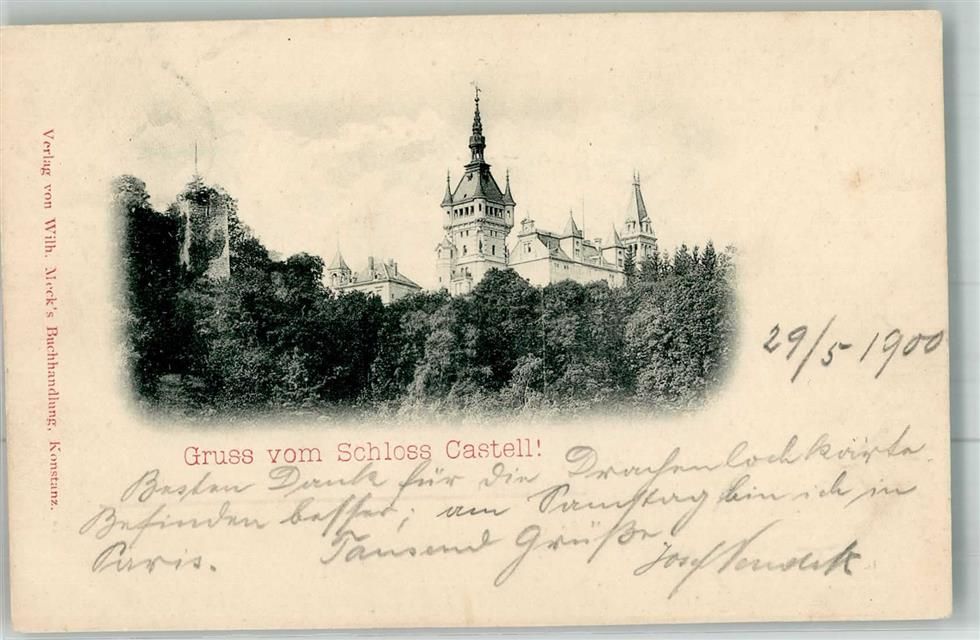 Verlag von Wilh. Meck's Buchhandlung, Konstanz.
29/5 1900
Gruss vom Schloss Castell!
Besten Dank für die Drachenlochkarte.
Befinden besser; am Samstag bin ich in
Paris. Tausend Grüße Josef